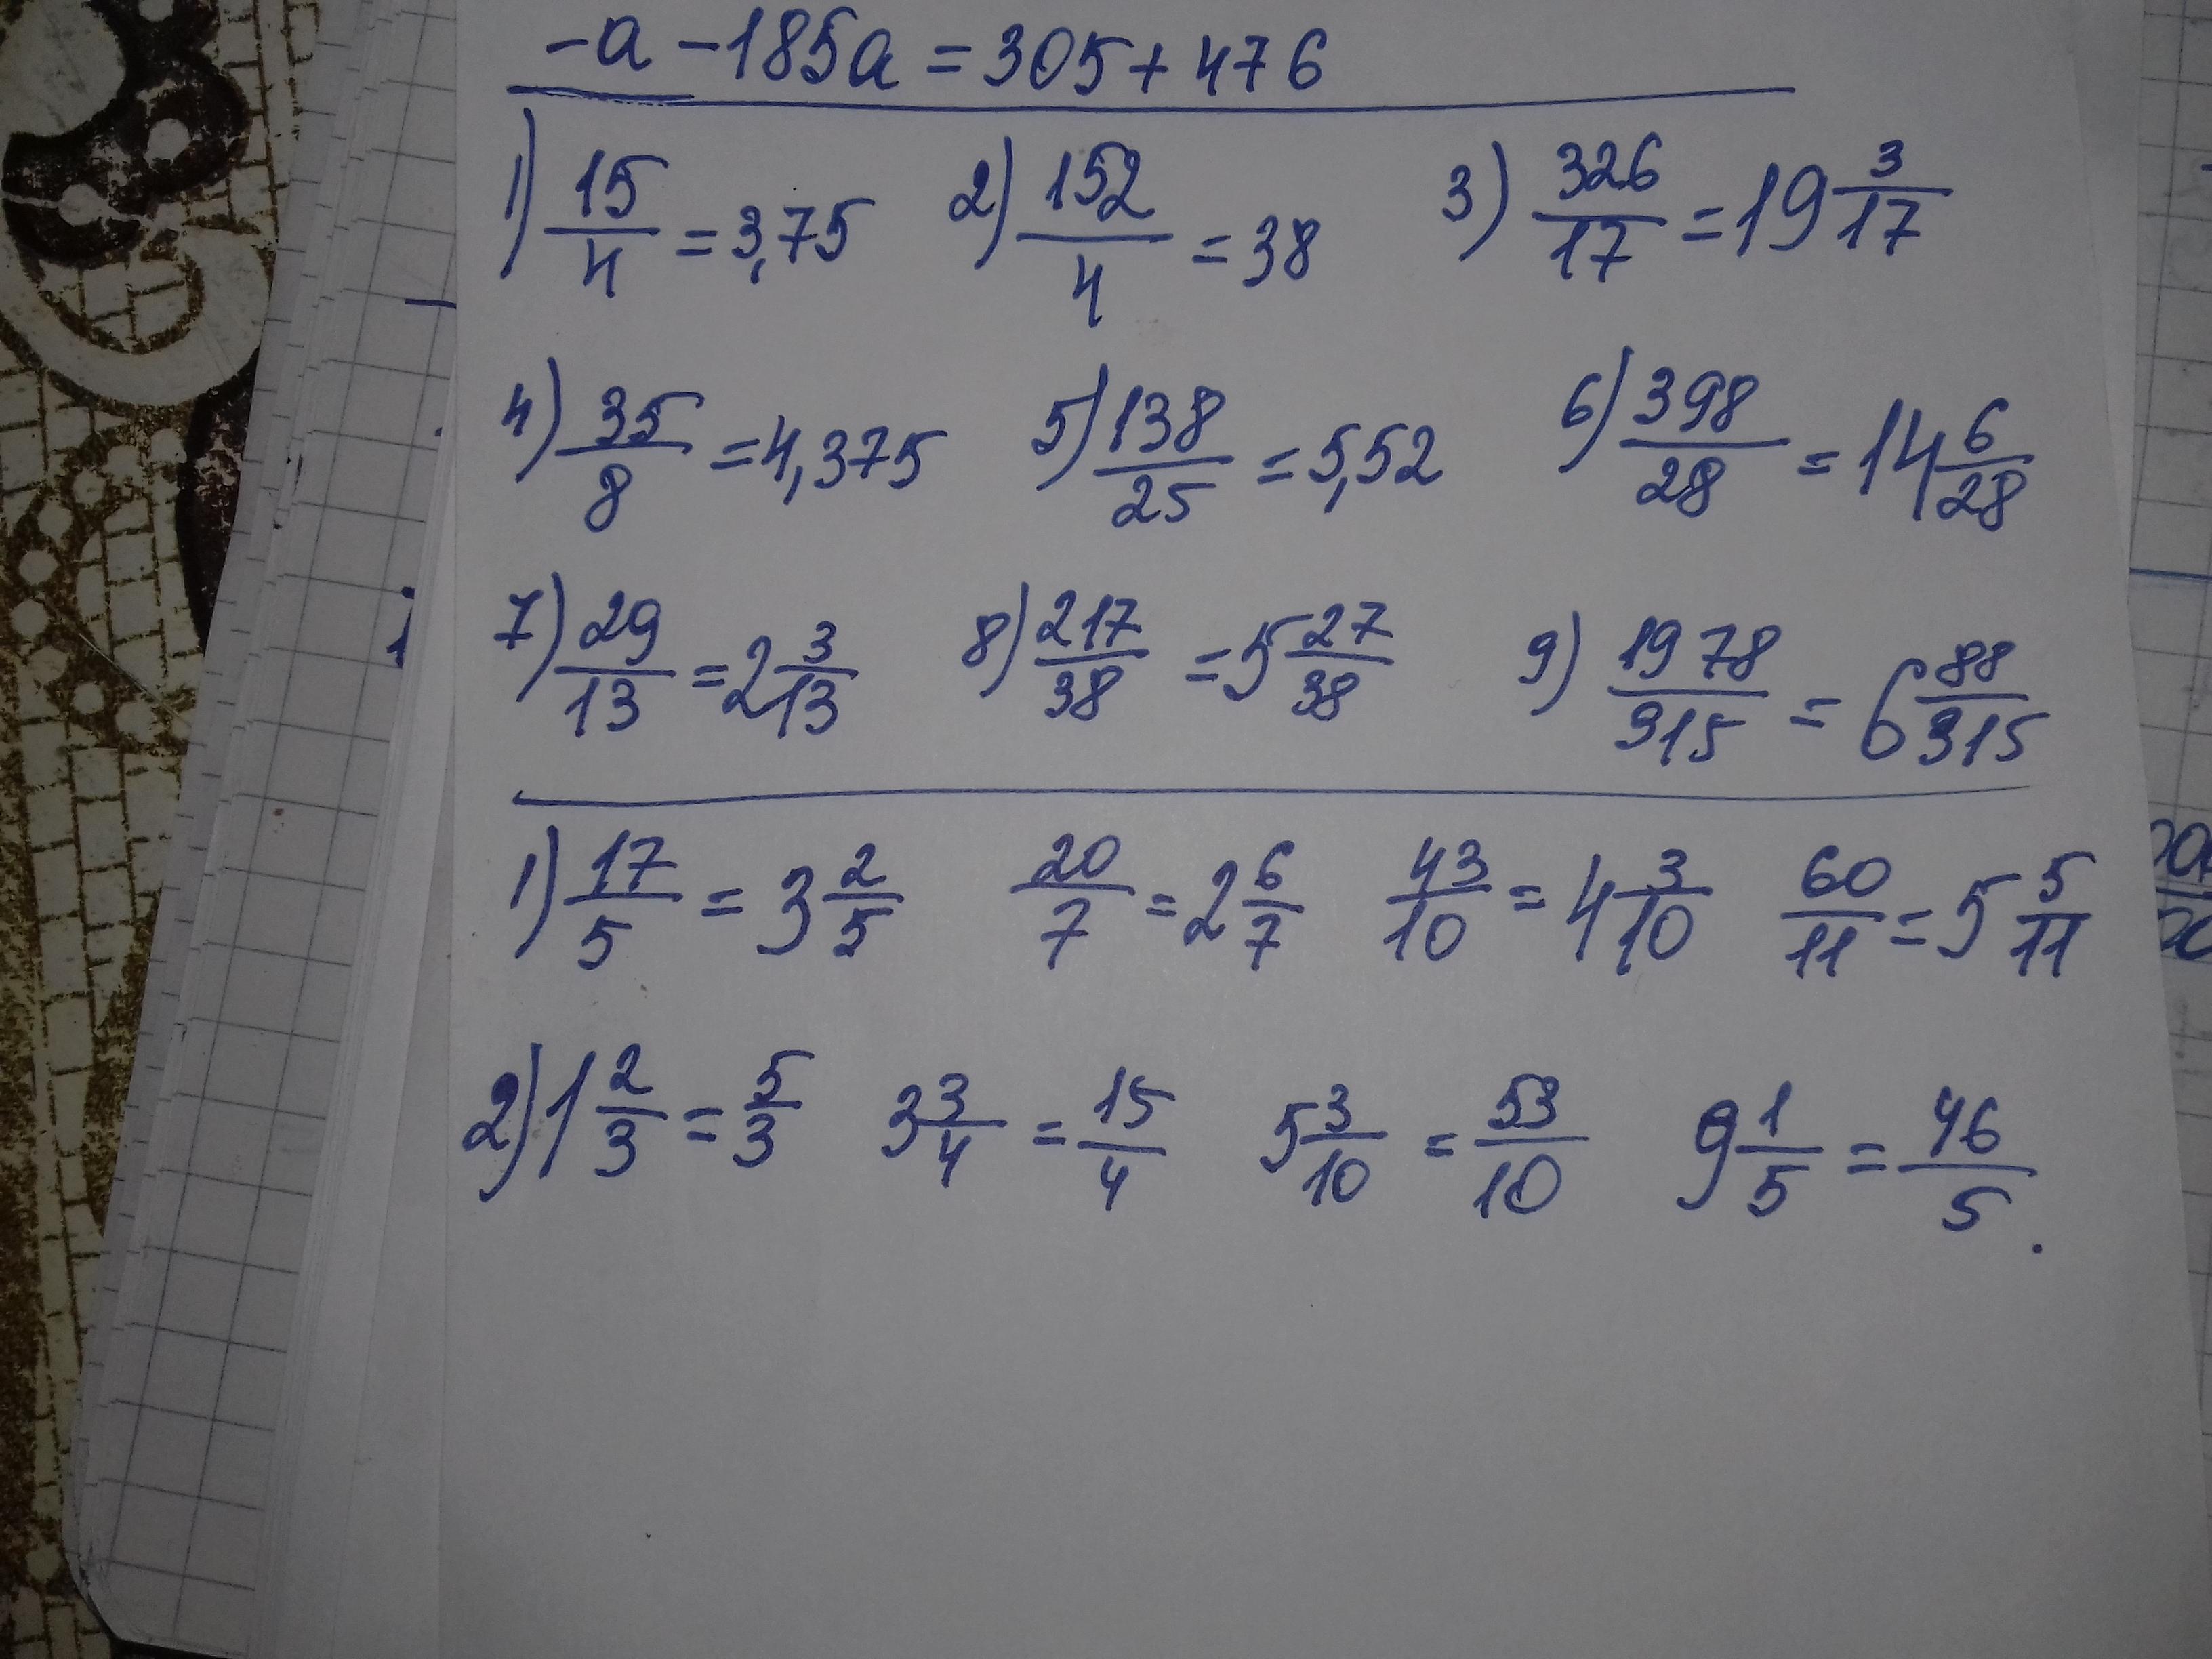 -a -185a = 305 + 476
1) 15/4 = 3,75 2) 152/4 = 38 3) 326/17 = 19 3/17
4) 35/8 = 4,375 5) 138/25 = 5,52 6) 398/28 = 14 6/28
7) 29/13 = 2 3/13 8) 217/38 = 5 27/38 9) 1978/315 = 6 88/315
1) 17/5 = 3 2/5 20/7 = 2 6/7 43/10 = 4 3/10 60/11 = 5 5/11
2) 1 2/3 = 5/3 3 3/4 = 15/4 5 3/10 = 53/10 9 1/5 = 46/5.